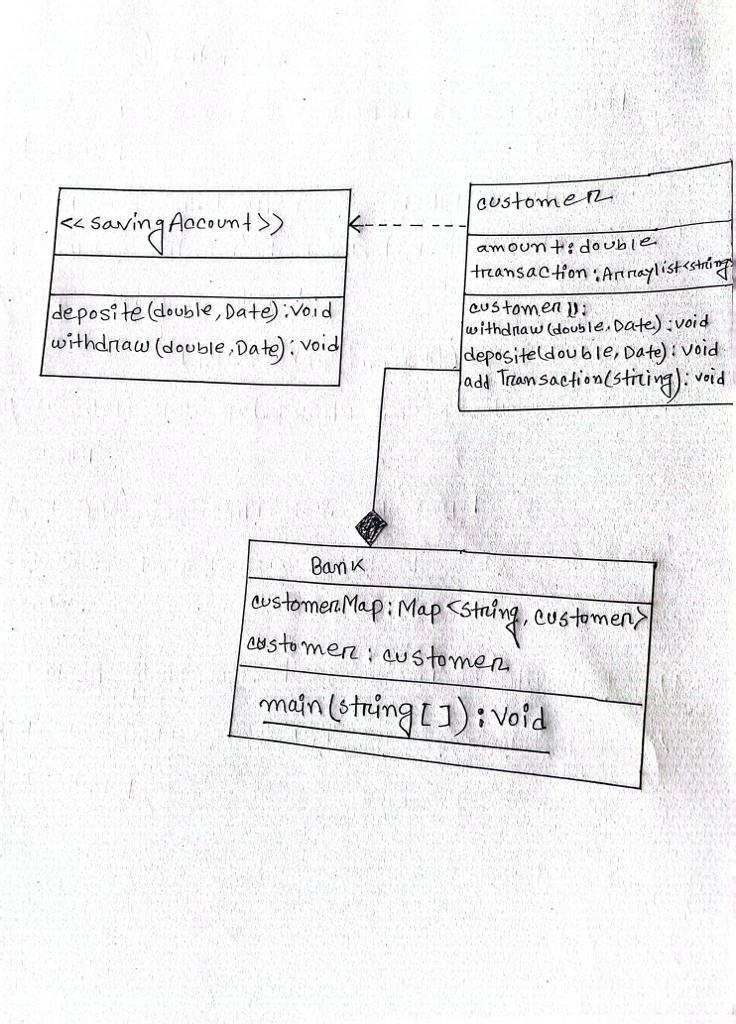 <<savingAccount>>
deposite(double,Date):void
withdraw(double,Date):void
customer
amount:double
transaction:Arraylist<string
customer():
withdraw(double,Date):void
deposite(double,Date):void
add Transaction(string):void
Bank
customerMap:Map<string,customer>
customer:customer
main(string[]):void